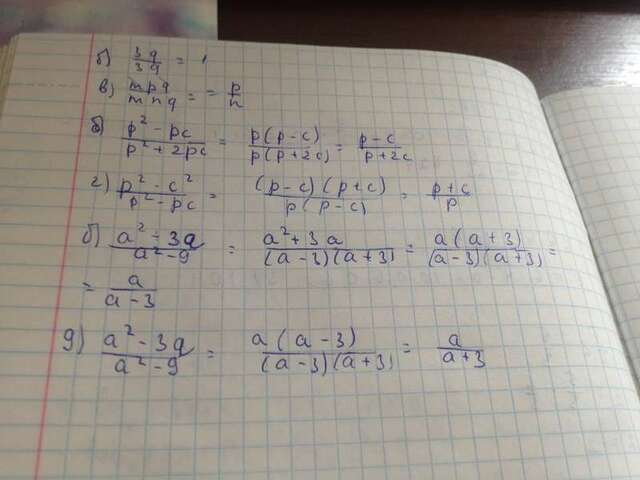 б) 3q/3q = 1
в) mpq/mnq = - p/n
б) p² - pc/p² + 2pc = p(p-c)/p(p+2c) = p-c/p+2c
г) p² - c²/p² - pc = (p-c)(p+c)/p(p-c) = p+c/p
б) a² - 3a/a² - 9 = a² + 3a/(a-3)(a+3) = a(a+3)/(a-3)(a+3) =
= a/a-3
д) a² - 3a/a² - 9 = a(a-3)/(a-3)(a+3) = a/a+3